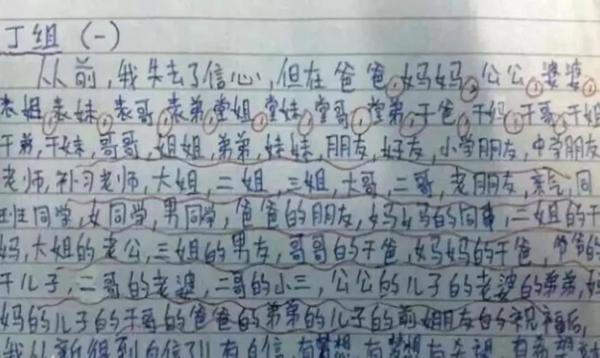 丁组 (一)
从前,我失去了信心,但在爸爸,妈妈,公公,婆婆,
表姐,表妹,表哥,表弟,堂姐,堂妹,堂哥,堂弟,干爸,干妈,干哥,干姐
干弟,干妹,哥哥,姐姐,弟弟,妹妹,朋友,好友,小学朋友,中学朋友
老师,补习老师,大姐,二姐,三姐,大哥,二哥,老朋友,亲气,同
性同学,女同学,男同学,爸爸的朋友,妈妈的同事,二姐的干
妈,大姐的老公,三姐的男友,哥哥的干爸,妈妈的干爸,爷爷的
干儿子,二哥的老婆,二哥的小三,公公的儿子的老婆的弟弟,妈
妈的儿子的干哥的爸爸的弟弟的儿子的前姐朋友的祝福后,
我从新得到自信了!有自信,有梦想